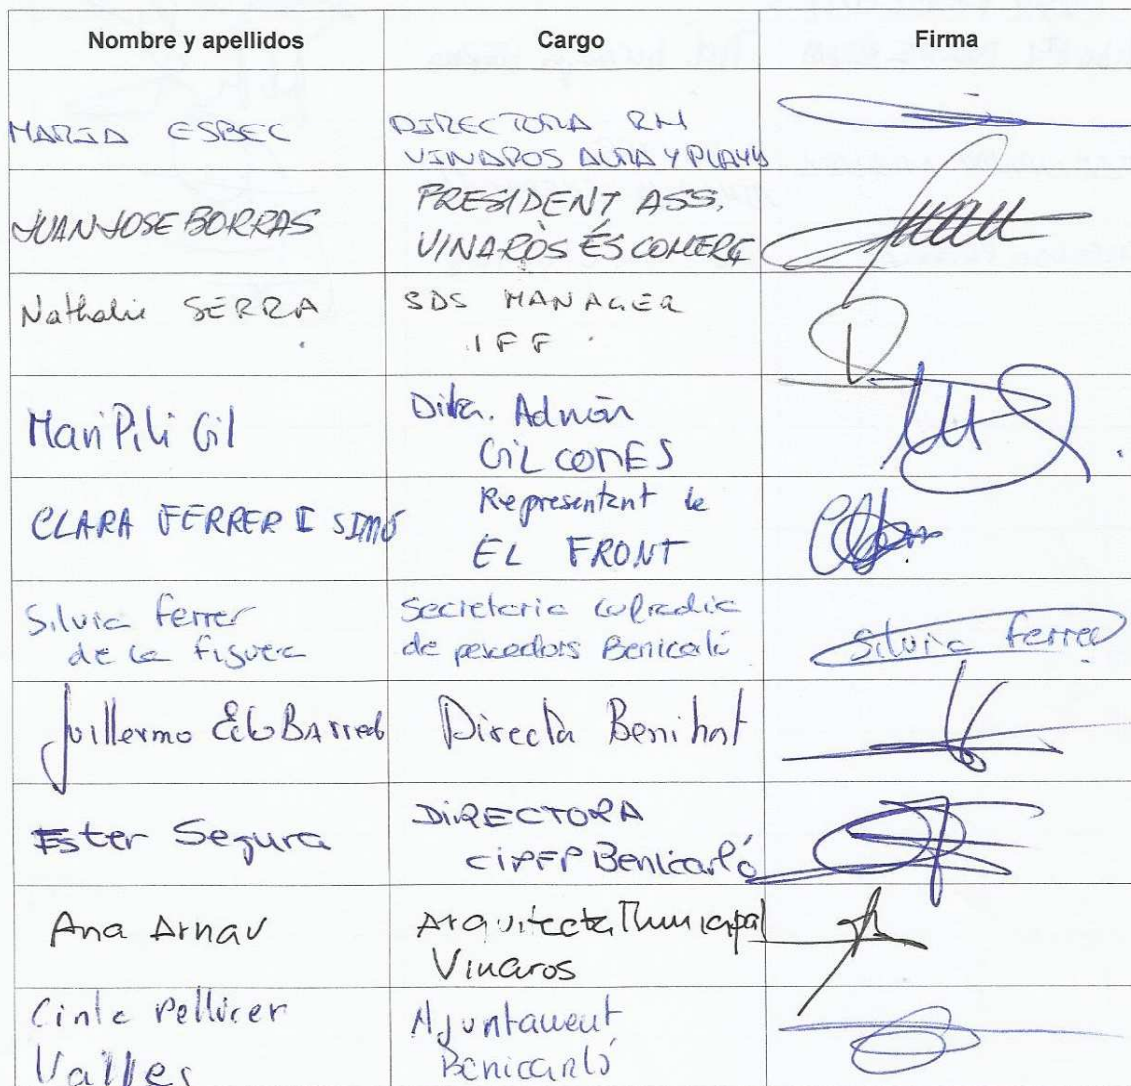 Nombre y apellidos Cargo Firma
MARIA ESBEC DIRECTORA RH
VINAROS AURA Y PLAYA
JUAN JOSE BORRAS PRESIDENT ASS.
VINARÒS ÉS COMERÇ
Nathalie SERRA SDS MANAGER
IFF
Mari Pili Gil Dtra. Admón
GIL COMES
CLARA FERRER I SIMÓ Representant de
EL FRONT
Silvia Ferrer Secretaria cofradia
de la Figuera de pescadors Benicarló
Silvia Ferrer
Guillermo Directa Benihort
Ester Segura DIRECTORA
CIPFP Benicarló
Ana Arnau Arquitecta Municipal
Vinaros
Cinta Pellicer Ajuntament
Valles Benicarló